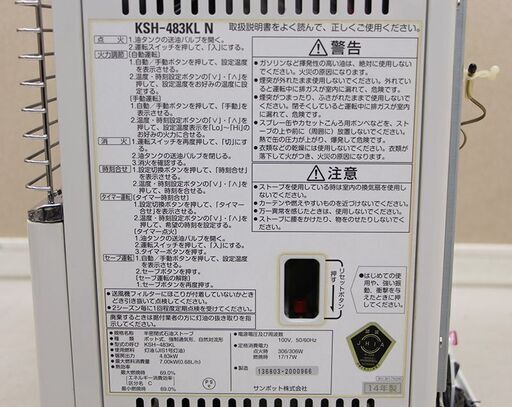 KSH-483KL N
取扱説明書をよく読んで、正しくご使用ください。
点火
1.油タンクの送油バルブを開く。
2.運転スイッチを押して、「入」にする。
火力調節
(自動運転)
1.自動/手動ボタンを押して、設定温度
を表示させる。
2.温度・時刻設定ボタンの「∨」「∧」
を押して、設定温度をお好みの温度に設
定する。
(手動運転)
1.自動/手動ボタンを押して、「手動」
を表示させる。
2.温度・時刻設定ボタンの「∨」「∧」を
押して、設定温度表示を「Lo」~「Hi」
のお好みの火力に合わせる。
消火
1.運転スイッチを再度押して、「切」にす
る。
2.油タンクの送油バルブを閉じる。
3.消火を確認する。
時刻合せ
1.設定切換ボタンを押して、「時刻合せ」
を表示させる。
2.温度・時刻設定ボタンの「∨」「∧」を
押して、時刻に合せる。
タイマー運転
(タイマー時刻合せ)
1.設定切換ボタンを押して、「タイマー合
せ」を表示させる。
2.温度・時刻設定ボタンの「∨」「∧」を
押して、希望の時刻を設定する。
(タイマー点火)
1.油タンクの送油バルブを開く。
2.運転スイッチを押して、「入」にする。
3.タイマーボタンを押す。
セーブ運転
1.自動/手動ボタンを押して、「自動」を
表示させる。
2.セーブボタンを押す。
(セーブ運転の解除)
1.再セーブボタンを押す。
●送風機フィルターにほこりが付着していないかとき
どき引き抜いて点検してください。
●2シーズン毎に1回程度定期点検を受けてください。
廃棄するときは据付業者の方に灯油の抜き取りを指
示してください。
⚠警告
●ガソリンなど揮発性の高い油は、絶対に使用しないで
ください。火災の原因になります。
●煙突が外れたまま使用しないでください。外れてい
ると運転中に排ガスが室内に漏れて、危険です。
●煙突がつまったり、ふさがれたまま使用しないでくだ
さい。閉そくしていると運転中に排ガスが室内
に漏れて、危険です。
●スプレー缶やカセットこんろ用ボンベなどを、スト
ーブの上や前(周囲)に放置しないでください。
熱で缶の圧力が上がり、爆発して危険です。
●衣類などの乾燥には使用しないでください。衣類が
落下して火がつき、火災の原因になります。
⚠注意
●ストーブを使用している時は室内の換気扇を使用し
ないでください。
●カーテンや燃えやすいものを近づけないでください。
●万一異常を感じたときは、使用しないでください。
●ストーブに腰をかけたり、物をのせたりしないでく
ださい。
押す
リセットボタン
●はじめての使
用や、強い振
動、衝撃を与
えたときに押
してください。
規格名称 : 半密閉式石油ストーブ
種類 : ポット式、強制通気形、自然対流形
型式の呼び : KSH-483KL
使用燃料 : 灯油(JIS1号灯油)
暖房出力 : 4.83kW
最大燃料消費量 : 7.00kW(0.68L/h)
電源電圧及び周波数
100V、50/60Hz
定格消費電力
点火時 306/306W
燃焼時 17/17W
製造
136603-2000966
サンポット株式会社
14年製